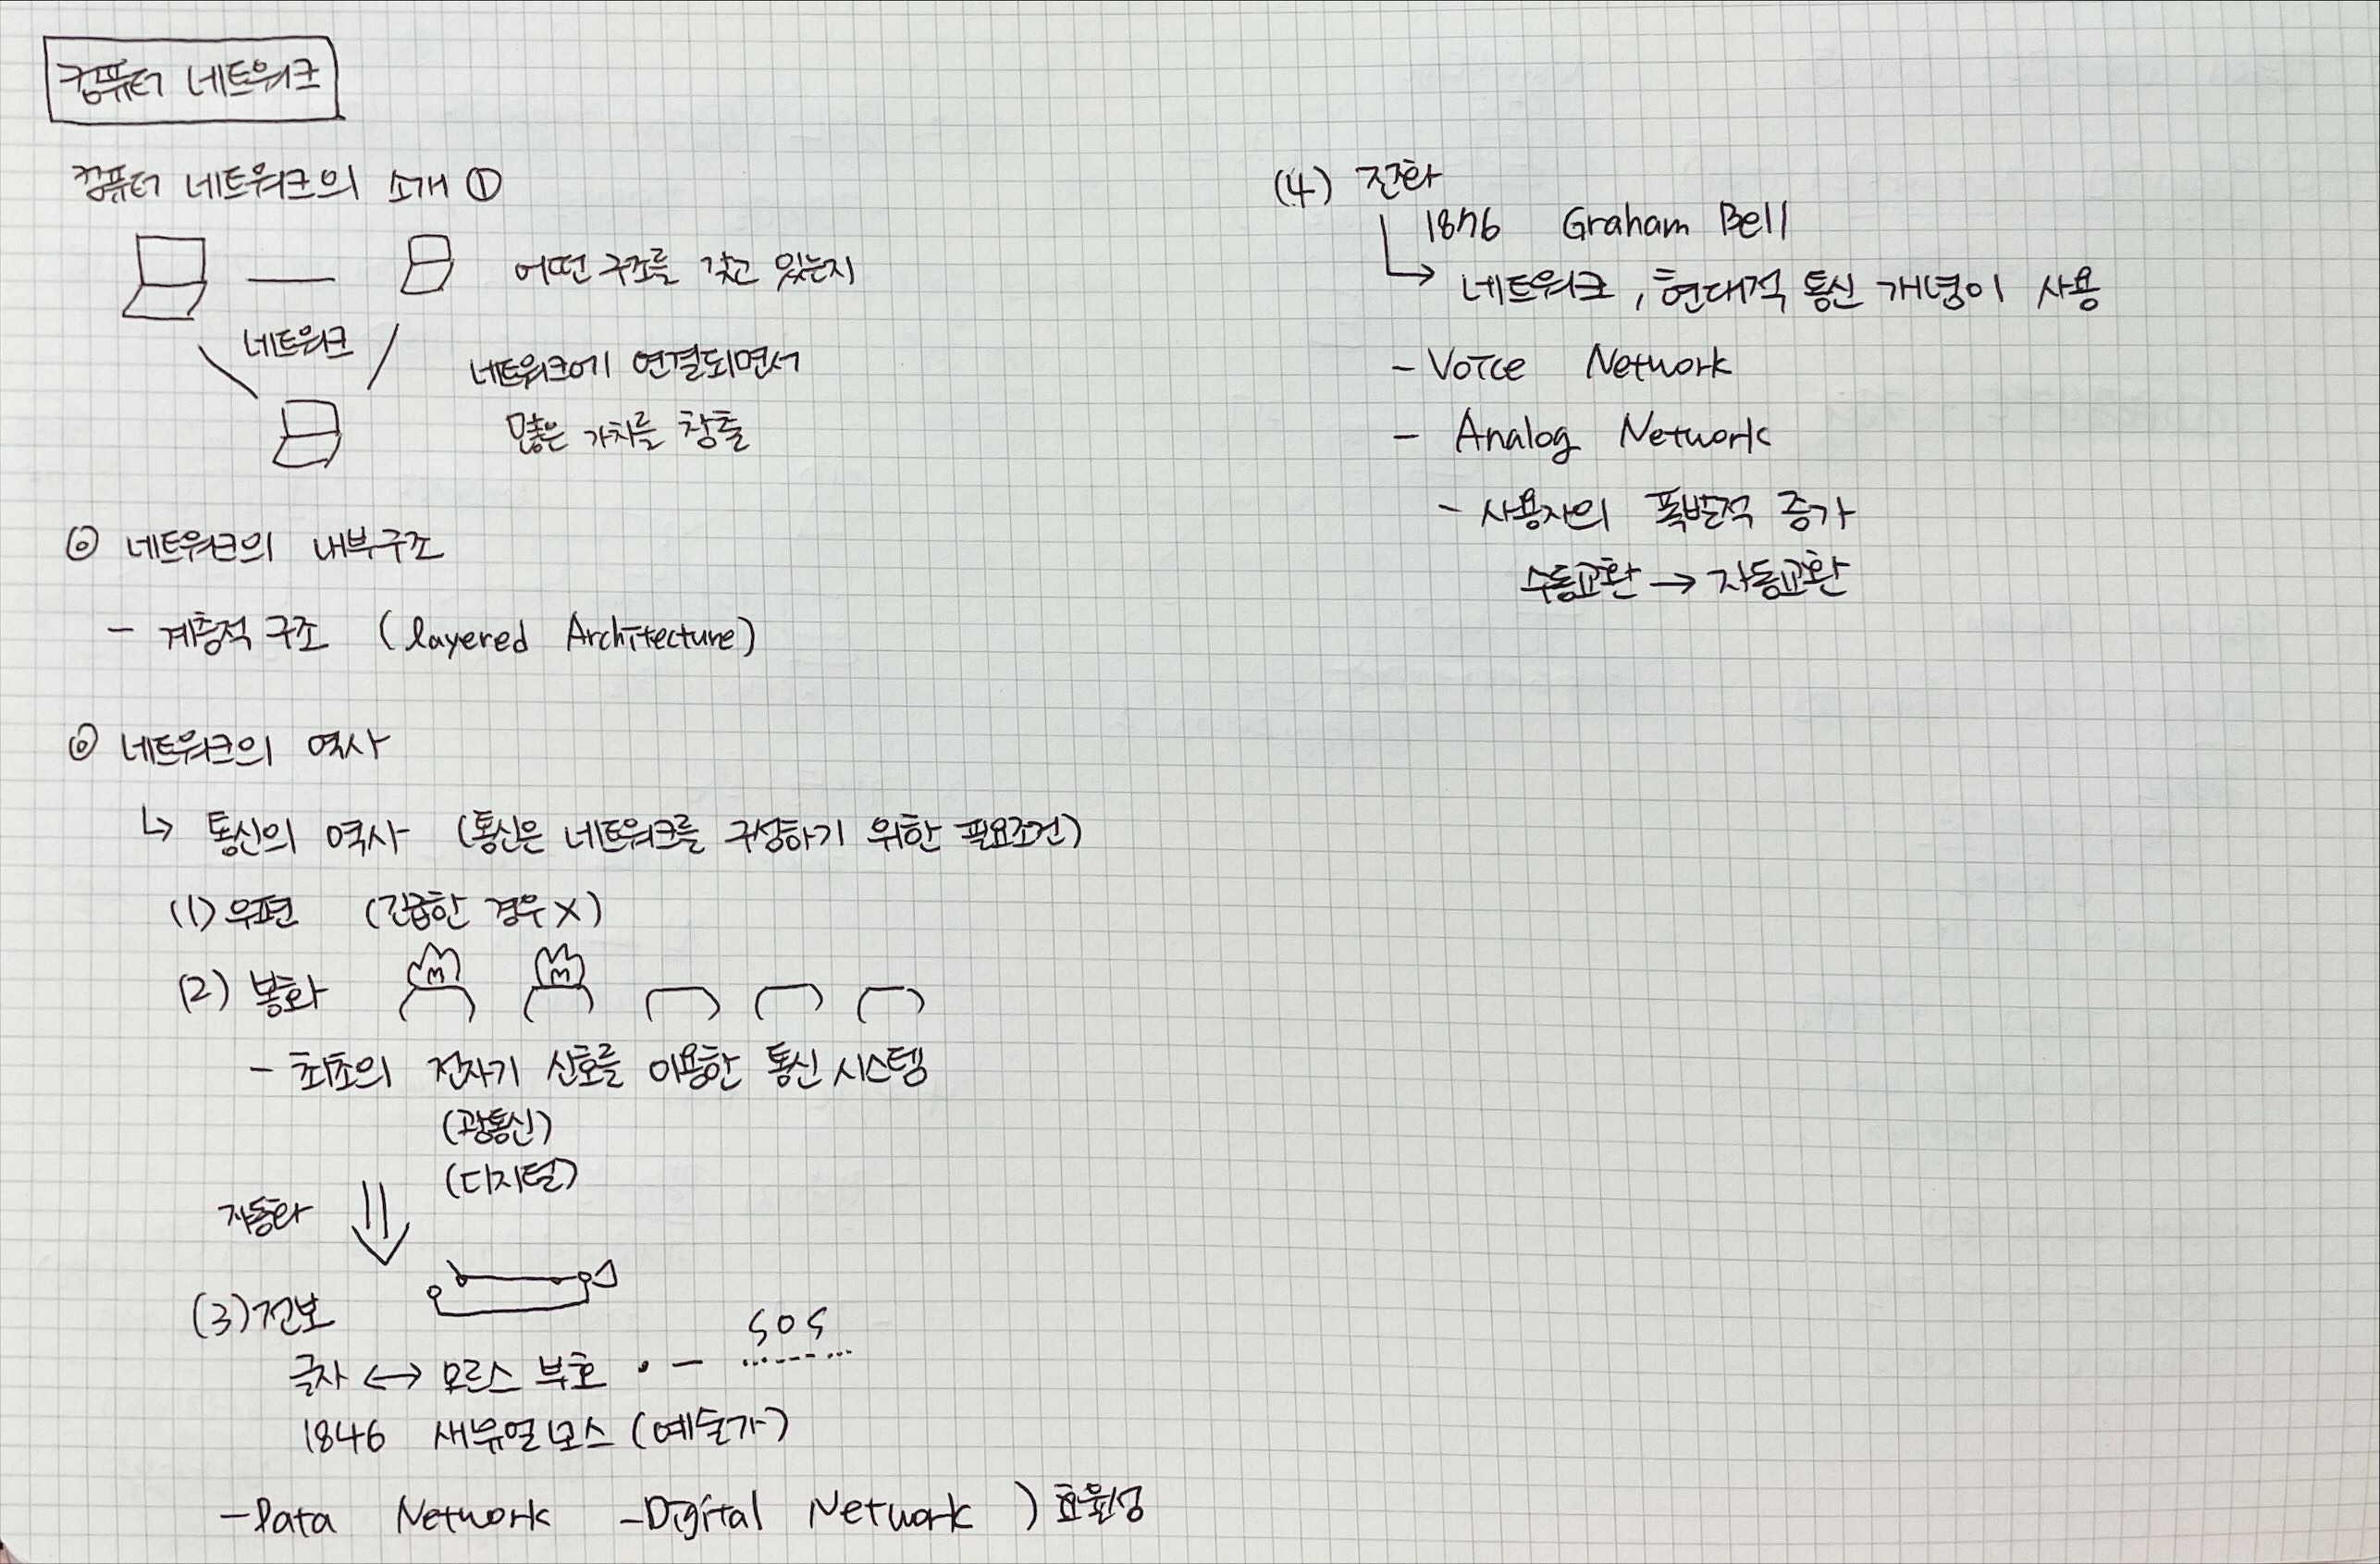 컴퓨터 네트워크
컴퓨터 네트워크의 소개 ①
어떤 구조를 갖고 있는지
네트워크
네트워크에 연결되면서
많은 가치를 창출
◎ 네트워크의 내부구조
- 계층적 구조 (layered Architecture)
◎ 네트워크의 역사
↳ 통신의 역사 (통신은 네트워크를 구성하기 위한 필요조건)
(1) 우편 (긴급한 경우 X)
(2) 봉화
- 최초의 전자기 신호를 이용한 통신 시스템
(광통신)
(디지털)
자동화
(3) 전보
SOS
글자 ↔ 모르스 부호 • — ...---...
1846 새뮤얼 모스 (예술가)
- Data Network - Digital Network ) 효율성
(4) 전화
1876 Graham Bell
네트워크, 현대적 통신 개념이 사용
- Voice Network
- Analog Network
- 사용자의 폭발적 증가
수동교환 → 자동교환